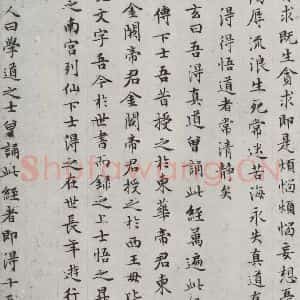 求既生貪求即是煩惱煩惱妄想
辱流浪生死常沈苦海永失真道
得得悟道者常清靜矣
玄曰吾得真道曾誦此經萬遍此
傳下士吾昔授之於東華帝君東
金闕帝君金闕帝君授之於西王母皆
文字吾今於世書而錄之上士悟之昇
之南宮列仙下士得之在世長年遊行
人曰學道之士持誦此經者即得十
Shufawang.CN